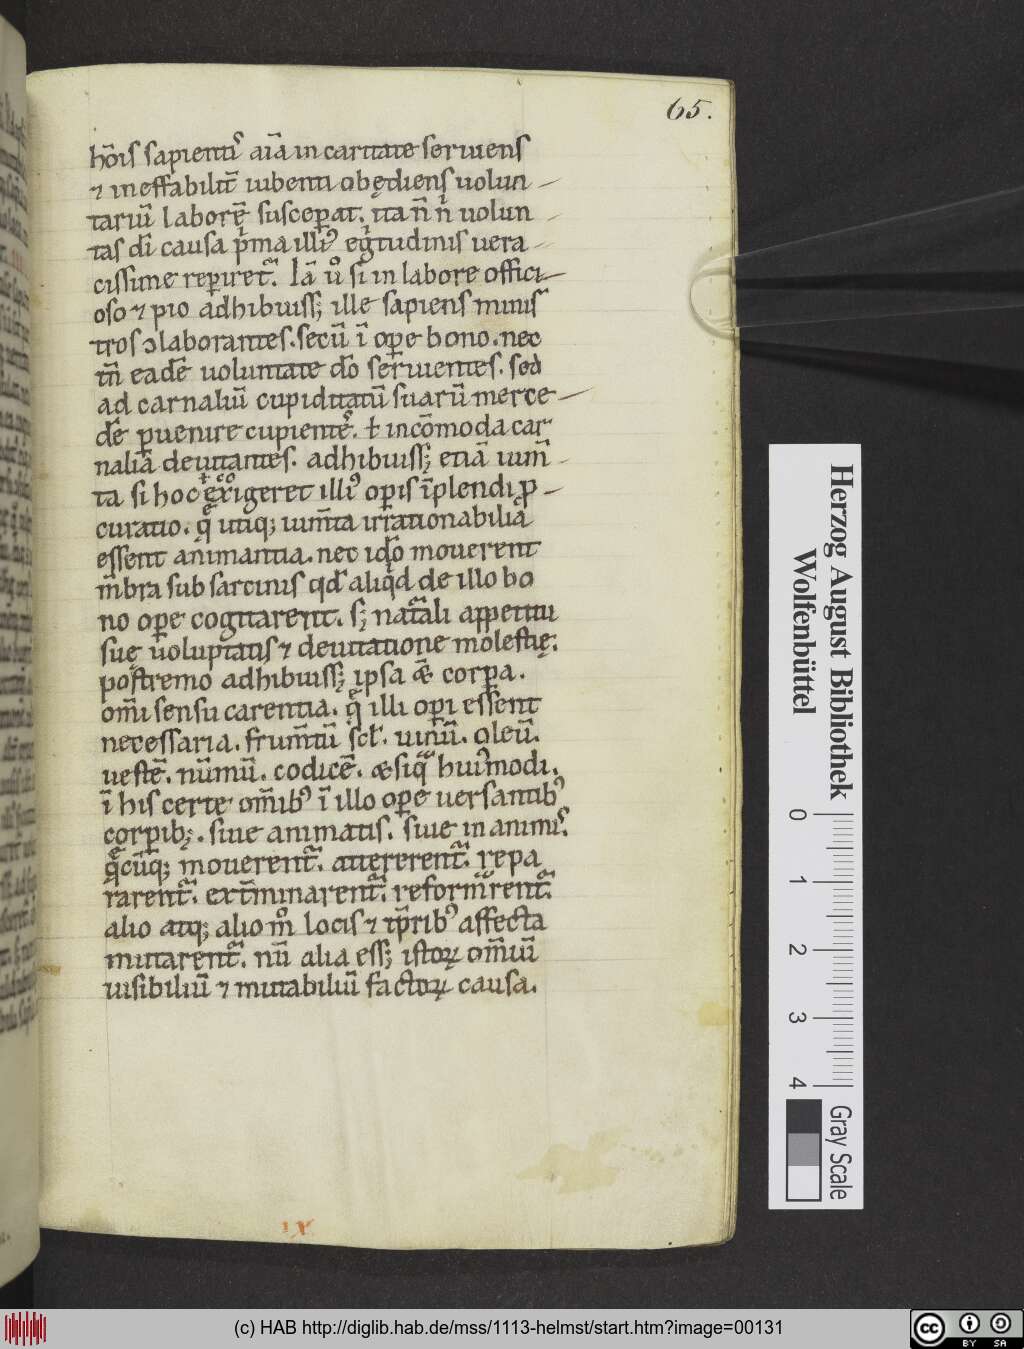 65.
hōis sapientiꝰ aīa in caritate seruiens
⁊ ineffabilit̄ iubenti obędiens uolun
tariū laborē suscep̱at. ita n̄ ñ uolun
tas dī causa p̄ma illiꝰ egͥtudinis uera
cissime rep̱iretᷓ. Iā uͦ si in labore offici
oso ⁊ pio adhibuiss; ille sapiens minis
tros ↄlaborantes. secū ī oꝑe bono. nec
tn̄ eadē uoluntate dō seruientes. sed
ad carnaliū cupiditatū suarū merce
dē ꝑuenire cupientes. ł incōmoda car
nalia deuitantes. adhibuiss; etiā ium̄
ta si hoc exigeret illiꝰ oꝑis īplendi ꝓ
curatio. q̄ utiq; ium̄ta irrationabilia
essent animantia. nec idō mouerent
m̄bra sub sarcinis qd̄ aliqͥd de illo bo
no oꝑe cogitarent. s; natᷓali appetitu
suę uoluptatis ⁊ deuitatione molestię.
postremo adhibuiss; ipsa ǣ corꝑa.
om̄i sensu carentia. q̄ illi oꝑi essent
necessaria. frum̄tū scł. uinū. oleū.
uestē. nūmū. codicē. ⁊ siqᷓ huiꝰmodi.
ī his certe om̄ibꝰ ī illo oꝑe uersantibꝰ
corꝑib;. siue animatis. siue inanimis.
q̄cūq; mouerentᷓ. attererentᷓ. repa
rarentᷓ. ext̄minarentᷓ. reformarentᷓ.
alio atq; alio mͦ locis ⁊ tp̄ribꝰ affecta
mutarentᷓ. nū alia ess; istoꝝ om̄iū
uisibiliū ⁊ mutabiliū factoꝝ causa.
IX
Herzog August Bibliothek
Wolfenbüttel
0 1 2 3 4
Gray Scale
(c) HAB http://diglib.hab.de/mss/1113-helmst/start.htm?image=00131
cc BY SA